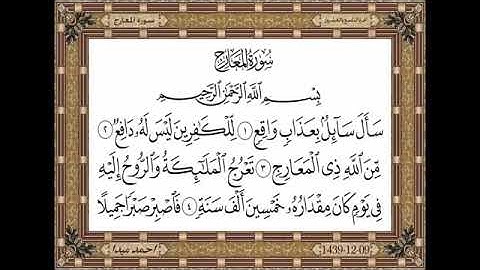 سورة المعارج
الجزء التاسع والعشرون
سُورَةُ المَعَارِجِ
بِسْمِ ٱللَّهِ ٱلرَّحْمَٰنِ ٱلرَّحِيمِ
سَأَلَ سَآئِلُۢ بِعَذَابٖ وَاقِعٖ ١ لِّلۡكَٰفِرِينَ لَيۡسَ لَهُۥ دَافِعٞ ٢
مِّنَ ٱللَّهِ ذِي ٱلۡمَعَارِجِ ٣ تَعۡرُجُ ٱلۡمَلَٰٓئِكَةُ وَٱلرُّوحُ إِلَيۡهِ
فِي يَوۡمٖ كَانَ مِقۡدَارُهُۥ خَمۡسِينَ أَلۡفَ سَنَةٖ ٤ فَٱصۡبِرۡ صَبۡرٗا جَمِيلًا
احمد عبدا
1439-12-09